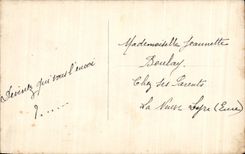 Devinez qui vous l'envoie
?......
Mademoiselle Jeannette
Boulay
Chez ses Parents
La Vieille Lyre (Eure)